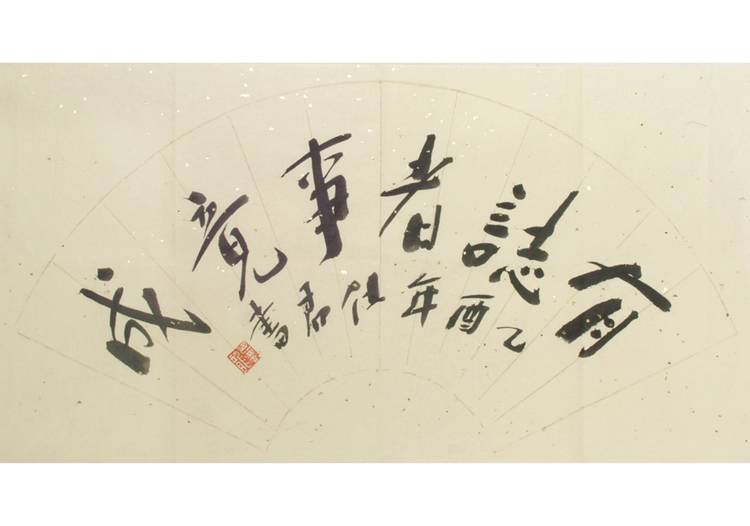 有誌者事竟成
乙酉年仕君書